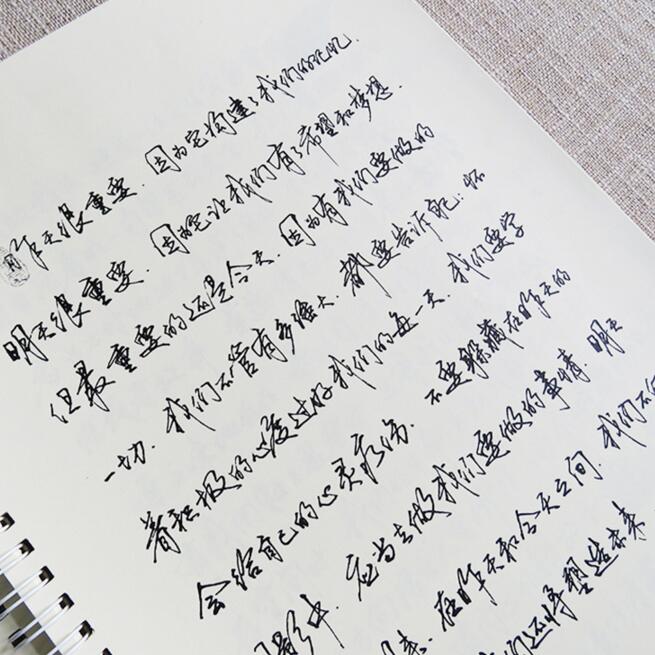 昨天很重要．因为它构建了我们的记忆．
明天很重要．因为它让我们有了希望和梦想．
但最重要的还是今天．因为有我们要做的
一切．我们不管有多强大．都要告诉自己：怀
着积极的心度过好我们的每一天．我们要学
会给自己的心灵疗伤．不要躲藏在昨天的
影中．应当去做我们要做的事情．明天
来．在昨天和今天之间．我们不
们还将塑造未来